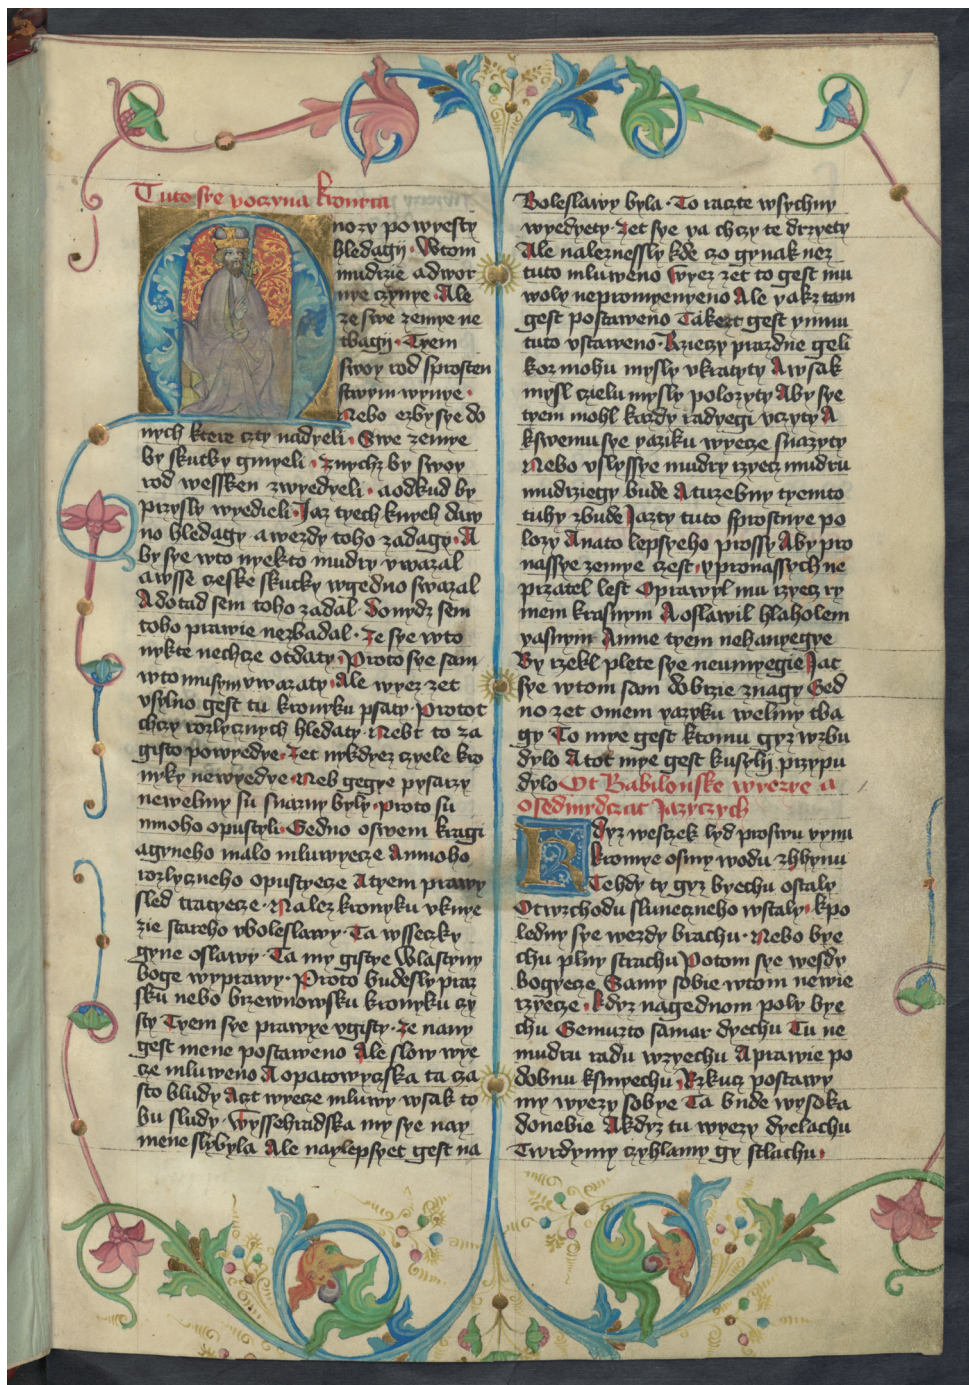 Tuto sye poczyna kronica
Mnozy powyesty
hledagij · Wtom
mudrzie a dwor
nye czynye · Ale
ze swe zemye ne
tbagij · Tyem
swoy rod sprosten
stwym wynye ·
Nebo czby sye do
nych ktere czty nadyeli · Swe zemye
by skutky gmyeli · znychz by swoy
rod wessken zwyedyeli · aodkud by
przysly wyedieli · Jaz tyech knyeh daw
no hledagy · a werdy toho zadagy · A
by sye wto nyekto mudry vwazal
a wsse czeske skutky wgedno swazal
A dotad sem toho zadal · Donydz sem
toho prawie nezbadal · Ze sye wto
nykte nechcze otdaty · Proto sye sam
wto musym vwazaty · Ale wyez zet
vsylno gest tu kronyku psaty · Protot
chczy rozlycznych hledaty · Nebt to za
gisto powyedye · Zet nykdyez czele kro
nyky newyedye · Neb gegye pysarzy
newelmy su snazny byly · proto su
mnoho opustyli · Gedno oswem kragi
agyneho malo mluwyecze Amnoho
rozlyczneho opustyecze Atyem prawy
sled tratyecze · Nalez kronyku vknye
zie stareho vboleslawy · Ta wsseczky
gyne oslawy · Ta my gistye Wlastyny
boge wyprawy · Proto budesly praz
sku nebo brzewnowsku kronyku czy
sty Tyem sye prawye vgisty · Ze nany
gest mene postaweno Ale slow wye
cze mluweno A opatowyczska ta cza
sto bludy Aczt wyecze mluwy wsak to
bu sludy · Wyssehradska my sye nay
mene slybyla Ale naylepsyet gest na
Boleslawy byla · To raczte wsychny
wyedyety · Zet sye ya chczy te drzyety
Ale naleznessly kde czo gynak nez
tuto mluweno Wyez zet to gest mu
woly nepromyenyeno Ale yakz tam
gest postaweno Takezt gest ynmu
tuto vstaweno · Rzieczy prazdne geli
koz mohu mysly vkratyty A wsak
mysl czielu mysly polozyty Aby sye
tyem mohl kazdy radyegi vczyty A
kswemu sye yaziku wyecze snazyty
Nebo vslyssye mudry rzyecz mudru
mudrziegy bude A turzebny tyemto
tuhy zbude Jazty tuto sprostnye po
lozy A nato lepsyeho prossy Aby pro
nassye zemye czest · y pronassych ne
przatel lest Oprawyl mu rzyecz ry
mem krasnym A oslawil hlaholem
yasnym Amne tyem nehanyegye
By rzekl plete sye neumyegie Jat
sye wtom sam dobrzie znagy Ged
no zet omem yazyku welmy tba
gy To mye gest ktomu gyz wzbu
dylo A tot mye gest kusylij przypu
dylo Ot Babilonske wyezye a
osedmydczat Jazyczych
Kdyz wesczek lyd proswu vynu
kromye osmy wodu zhhynu
Tehdy ty gyz byechu ostaly
Otwzchodu sluneczneho wstaly · kpo
ledny sye wezdy brachu · Nebo bye
chu plny strachu Potom sye wesdy
bogyecze Samy sobie wtom newie
rzyecze · kdyz nagednom poly bye
chu Gemuzto samar dyechu Tu ne
mudru radu wzyechu A prawie po
dobnu ksmyechu · Rzkucz postawy
my wyezy sobye Ta bude wysoka
donebie A kdyz tu wyezy dyelachu
Twrdymy czyhlamy gy stlachu ·